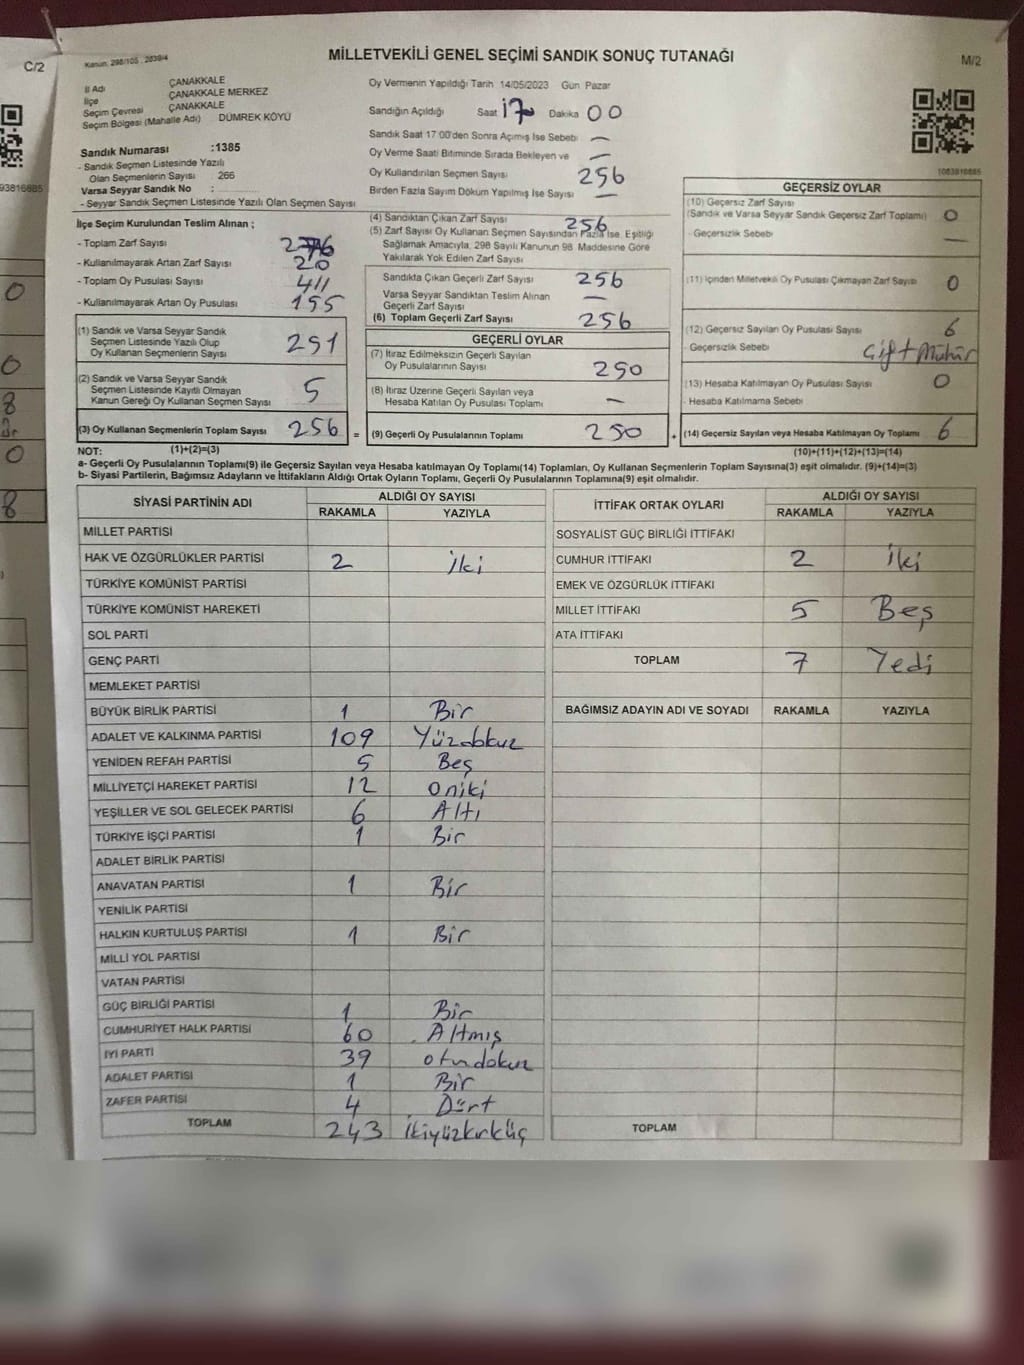 C/2
Kanun: 298/105 , 2839/4
MİLLETVEKİLİ GENEL SEÇİMİ SANDIK SONUÇ TUTANAĞI
M/2
İl Adı ÇANAKKALE
İlçe ÇANAKKALE MERKEZ
Seçim Çevresi ÇANAKKALE
Seçim Bölgesi (Mahalle Adı) DÜMREK KÖYÜ
Sandık Numarası :1385
- Sandık Seçmen Listesinde Yazılı
Olan Seçmenlerin Sayısı : 266
Varsa Seyyar Sandık No :
- Seyyar Sandık Seçmen Listesinde Yazılı Olan Seçmen Sayısı
Oy Vermenin Yapıldığı Tarih 14/05/2023 Gün Pazar
Sandığın Açıldığı Saat 17 Dakika 00
Sandık Saat 17 00'den Sonra Açımış İse Sebebi —
Oy Verme Saati Bitiminde Sırada Bekleyen ve —
Oy Kullandırılan Seçmen Sayısı 256
Birden Fazla Sayım Döküm Yapılmış İse Sayısı —
1083816885
93816885
İlçe Seçim Kurulundan Teslim Alınan ;
- Toplam Zarf Sayısı
- Kullanılmayarak Artan Zarf Sayısı 20
- Toplam Oy Pusulası Sayısı 411
- Kullanılmayarak Artan Oy Pusulası 155
(1) Sandık ve Varsa Seyyar Sandık
Seçmen Listesinde Yazılı Olup
Oy Kullanan Seçmenlerin Sayısı 251
(2) Sandık ve Varsa Seyyar Sandık
Seçmen Listesinde Kayıtlı Olmayan
Kanun Gereği Oy Kullanan Seçmen Sayısı 5
(3) Oy Kullanan Seçmenlerin Toplam Sayısı 256 =
(4) Sandıktan Çıkan Zarf Sayısı 256
(5) Zarf Sayısı Oy Kullanan Seçmen Sayısından Fazla İse, Eşitliği
Sağlamak Amacıyla, 298 Sayılı Kanunun 98. Maddesine Göre
Yakılarak Yok Edilen Zarf Sayısı
Sandıkta Çıkan Geçerli Zarf Sayısı 256
Varsa Seyyar Sandıktan Teslim Alınan
Geçerli Zarf Sayısı —
(6) Toplam Geçerli Zarf Sayısı 256
GEÇERLİ OYLAR
(7) İtiraz Edilmeksizin Geçerli Sayılan
Oy Pusulalarının Sayısı 250
(8) İtiraz Üzerine Geçerli Sayılan veya
Hesaba Katılan Oy Pusulası Toplamı —
(9) Geçerli Oy Pusulalarının Toplamı 250 +
GEÇERSİZ OYLAR
(10) Geçersiz Zarf Sayısı
(Sandık ve Varsa Seyyar Sandık Geçersiz Zarf Toplamı) 0
- Geçersizlik Sebebi —
(11) İçinden Milletvekili Oy Pusulası Çıkmayan Zarf Sayısı 0
(12) Geçersiz Sayılan Oy Pusulası Sayısı 6
- Geçersizlik Sebebi Çift Mühür
(13) Hesaba Katılmayan Oy Pusulası Sayısı 0
- Hesaba Katılmama Sebebi
(14) Geçersiz Sayılan veya Hesaba Katılmayan Oy Toplamı 6
NOT: (1)+(2)=(3) (10)+(11)+(12)+(13)=(14)
a- Geçerli Oy Pusulalarının Toplamı(9) ile Geçersiz Sayılan veya Hesaba katılmayan Oy Toplamı(14) Toplamları, Oy Kullanan Seçmenlerin Toplam Sayısına(3) eşit olmalıdır. (9)+(14)=(3)
b- Siyasi Partilerin, Bağımsız Adayların ve İttifakların Aldığı Ortak Oyların Toplamı, Geçerli Oy Pusulalarının Toplamına(9) eşit olmalıdır.
SİYASİ PARTİNİN ADI ALDIĞI OY SAYISI
RAKAMLA YAZIYLA
MİLLET PARTİSİ
HAK VE ÖZGÜRLÜKLER PARTİSİ 2 İki
TÜRKİYE KOMÜNİST PARTİSİ
TÜRKİYE KOMÜNİST HAREKETİ
SOL PARTİ
GENÇ PARTİ
MEMLEKET PARTİSİ
BÜYÜK BİRLİK PARTİSİ 1 Bir
ADALET VE KALKINMA PARTİSİ 109 Yüzdokuz
YENİDEN REFAH PARTİSİ 5 Beş
MİLLİYETÇİ HAREKET PARTİSİ 12 oniki
YEŞİLLER VE SOL GELECEK PARTİSİ 6 Altı
TÜRKİYE İŞÇİ PARTİSİ 1 Bir
ADALET BİRLİK PARTİSİ
ANAVATAN PARTİSİ 1 Bir
YENİLİK PARTİSİ
HALKIN KURTULUŞ PARTİSİ 1 Bir
MİLLİ YOL PARTİSİ
VATAN PARTİSİ
GÜÇ BİRLİĞİ PARTİSİ 1 Bir
CUMHURİYET HALK PARTİSİ 60 Altmış
İYİ PARTİ 39 otuzdokuz
ADALET PARTİSİ 1 Bir
ZAFER PARTİSİ 4 Dört
TOPLAM 243 ikiyüzkırküç
İTTİFAK ORTAK OYLARI ALDIĞI OY SAYISI
RAKAMLA YAZIYLA
SOSYALİST GÜÇ BİRLİĞİ İTTİFAKI
CUMHUR İTTİFAKI 2 İki
EMEK VE ÖZGÜRLÜK İTTİFAKI
MİLLET İTTİFAKI 5 Beş
ATA İTTİFAKI
TOPLAM 7 Yedi
BAĞIMSIZ ADAYIN ADI VE SOYADI RAKAMLA YAZIYLA
TOPLAM